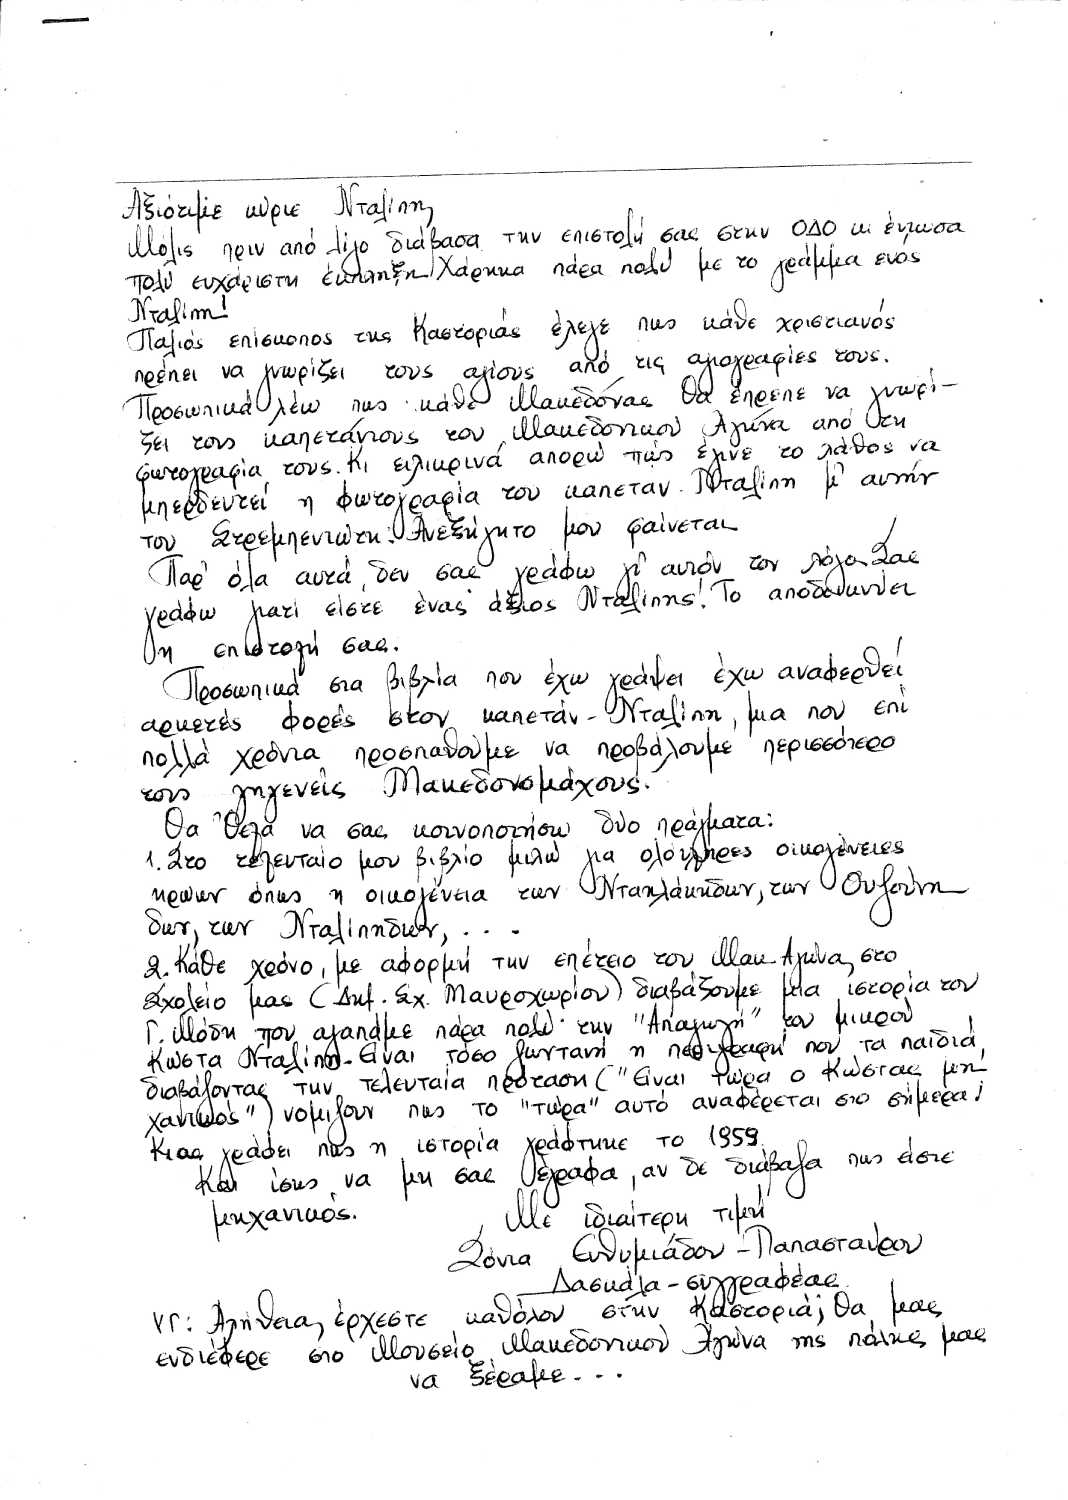 Αξιότιμε κύριε Νταλίπη,
Μόλις πριν από λίγο διάβασα την επιστολή σας στην ΟΔΟ κι ένιωσα
πολύ ευχάριστη έκπληξη. Χάρηκα πάρα πολύ με το γράμμα ενός
Νταλίπη!
Παλιός επίσκοπος της Καστοριάς έλεγε πως κάθε χριστιανός
πρέπει να γνωρίζει τους αγίους από τις αγιογραφίες τους.
Προσωπικά λέω πως κάθε Μακεδόνας θα έπρεπε να γνωρί-
ζει τους καπετάνιους του Μακεδονικού Αγώνα από τη
φωτογραφία τους. Κι ειλικρινά απορώ πώς έγινε το λάθος να
μπερδευτεί η φωτογραφία του καπετάν Νταλίπη μ' αυτήν
του Στρεμπενιώτη. Ανεξήγητο μου φαίνεται
Παρ' όλα αυτά, δεν σας γράφω γι' αυτόν τον λόγο. Σας
γράφω γιατί είστε ένας άξιος Νταλίπης! Το αποδεικνύει
η επιστολή σας.
Προσωπικά στα βιβλία που έχω γράψει έχω αναφερθεί
αρκετές φορές στον καπετάν-Νταλίπη, μια που επί
πολλά χρόνια προσπαθούμε να προβάλουμε περισσότερο
τους γηγενείς Μακεδονομάχους.
Θα 'θελα να σας κοινοποιήσω δύο πράγματα:
1. Στο τελευταίο μου βιβλίο μιλώ για ολόκληρες οικογένειες
ηρώων όπως η οικογένεια των Νταηλάκηδων, των Ουζούνη
δων, των Νταλίπηδων, . . .
2. Κάθε χρόνο, με αφορμή την επέτειο του Μακ. Αγώνα, στο
σχολείο μας (Δημ. Σχ. Μαυροχωρίου) διαβάζουμε μια ιστορία του
Γ. Μόδη που αγαπάμε πάρα πολύ: την "Απαγωγή" του μικρού
Κώστα Νταλίπη. Είναι τόσο ζωντανή η περιγραφή που τα παιδιά,
διαβάζοντας την τελευταία πρόταση ("Είναι τώρα ο Κώστας μη
χανικός") νομίζουν πως το "τώρα" αυτό αναφέρεται στο σήμερα!
Κι ας γράφει πως η ιστορία γράφτηκε το 1959.
Και ίσως να μη σας έγραφα, αν δε διάβαζα πως είστε
μηχανικός.
Με ιδιαίτερη τιμή
Σόνια Ευθυμιάδου-Παπασταύρου
Δασκάλα-συγγραφέας
ΥΓ: Αλήθεια, έρχεστε καθόλου στην Καστοριά; Θα μας
ενδιέφερε στο Μουσείο Μακεδονικού Αγώνα της πόλης μας
να ξέραμε . . .